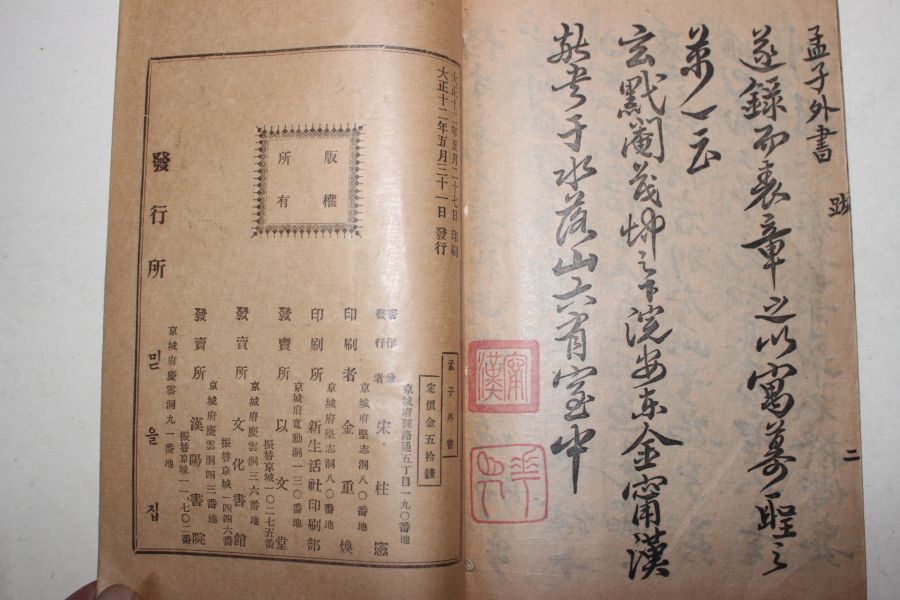 孟子外書 跋 二
遂錄而表章之以寓慕聖之
萬一云
玄黓閹茂姤之下浣安東金甯漢
敬書于水落山六有室中
甯漢
大正十二年五月二十七日 印刷
大正十二年五月三十一日 發行
版權
所有
孟子外書
定價金五拾錢
京城府鍾路通五丁目一九〇番地
著作兼發行者 宋柱憲
京城府堅志洞八〇番地
印刷者 金重煥
京城府堅志洞八〇番地
印刷所 新生活社印刷部
京城府寬勳洞一三〇番地
發賣所 以文堂
振替京城一〇二七五番
京城府慶雲洞三六番地
發賣所 文化書館
振替京城一四四六番
京城府慶雲洞四三番地
發賣所 漢陽書院
振替京城一一、七〇二番
京城府慶雲洞九一番地
發行所 믿을집